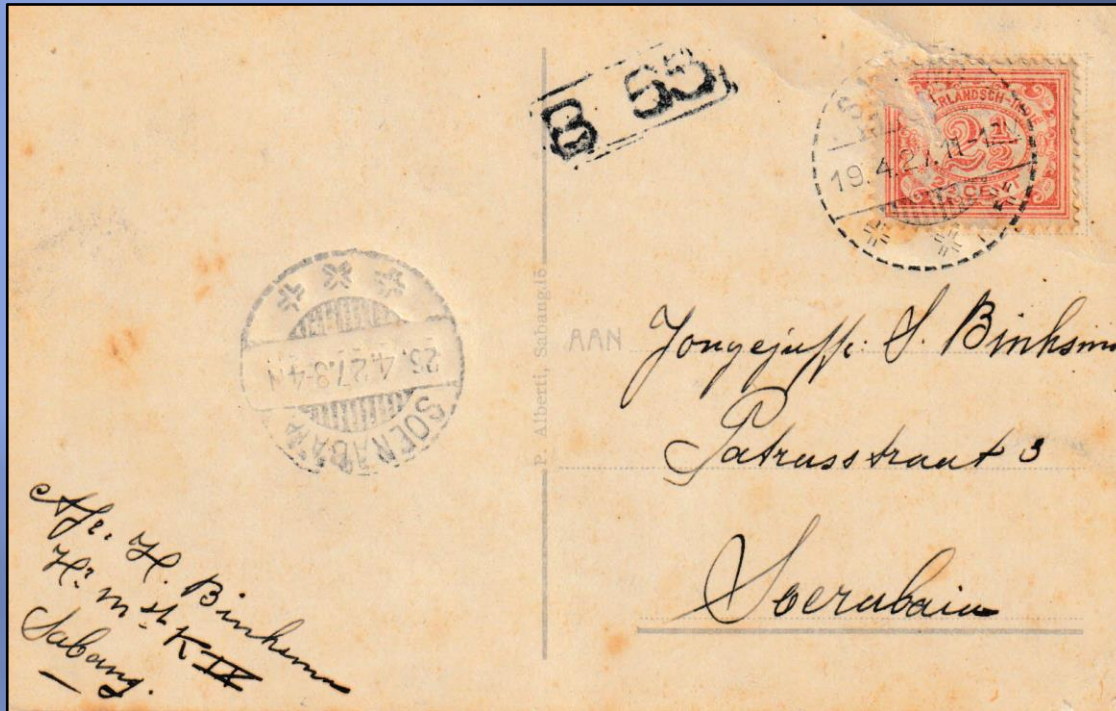 B 53
NEDERLANDSCH-INDIE
2½
CENT
19.4.27.11-12N
P. Alberti, Sabang.15
4.27.3-4N
SOERABAJA
AAN
Jongejuffr: S. Binhsma
Patrusstraat 3
Soerabaia
Afz. H. Binhsma
Hr Ms K IX
Sabang.